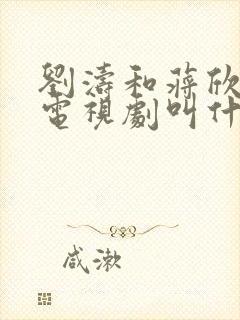 劉濤和蔣欣
電視劇叫什
咸漱